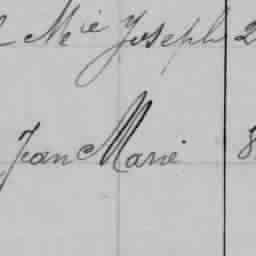 Mie Joseph 2
Jean Marie 8